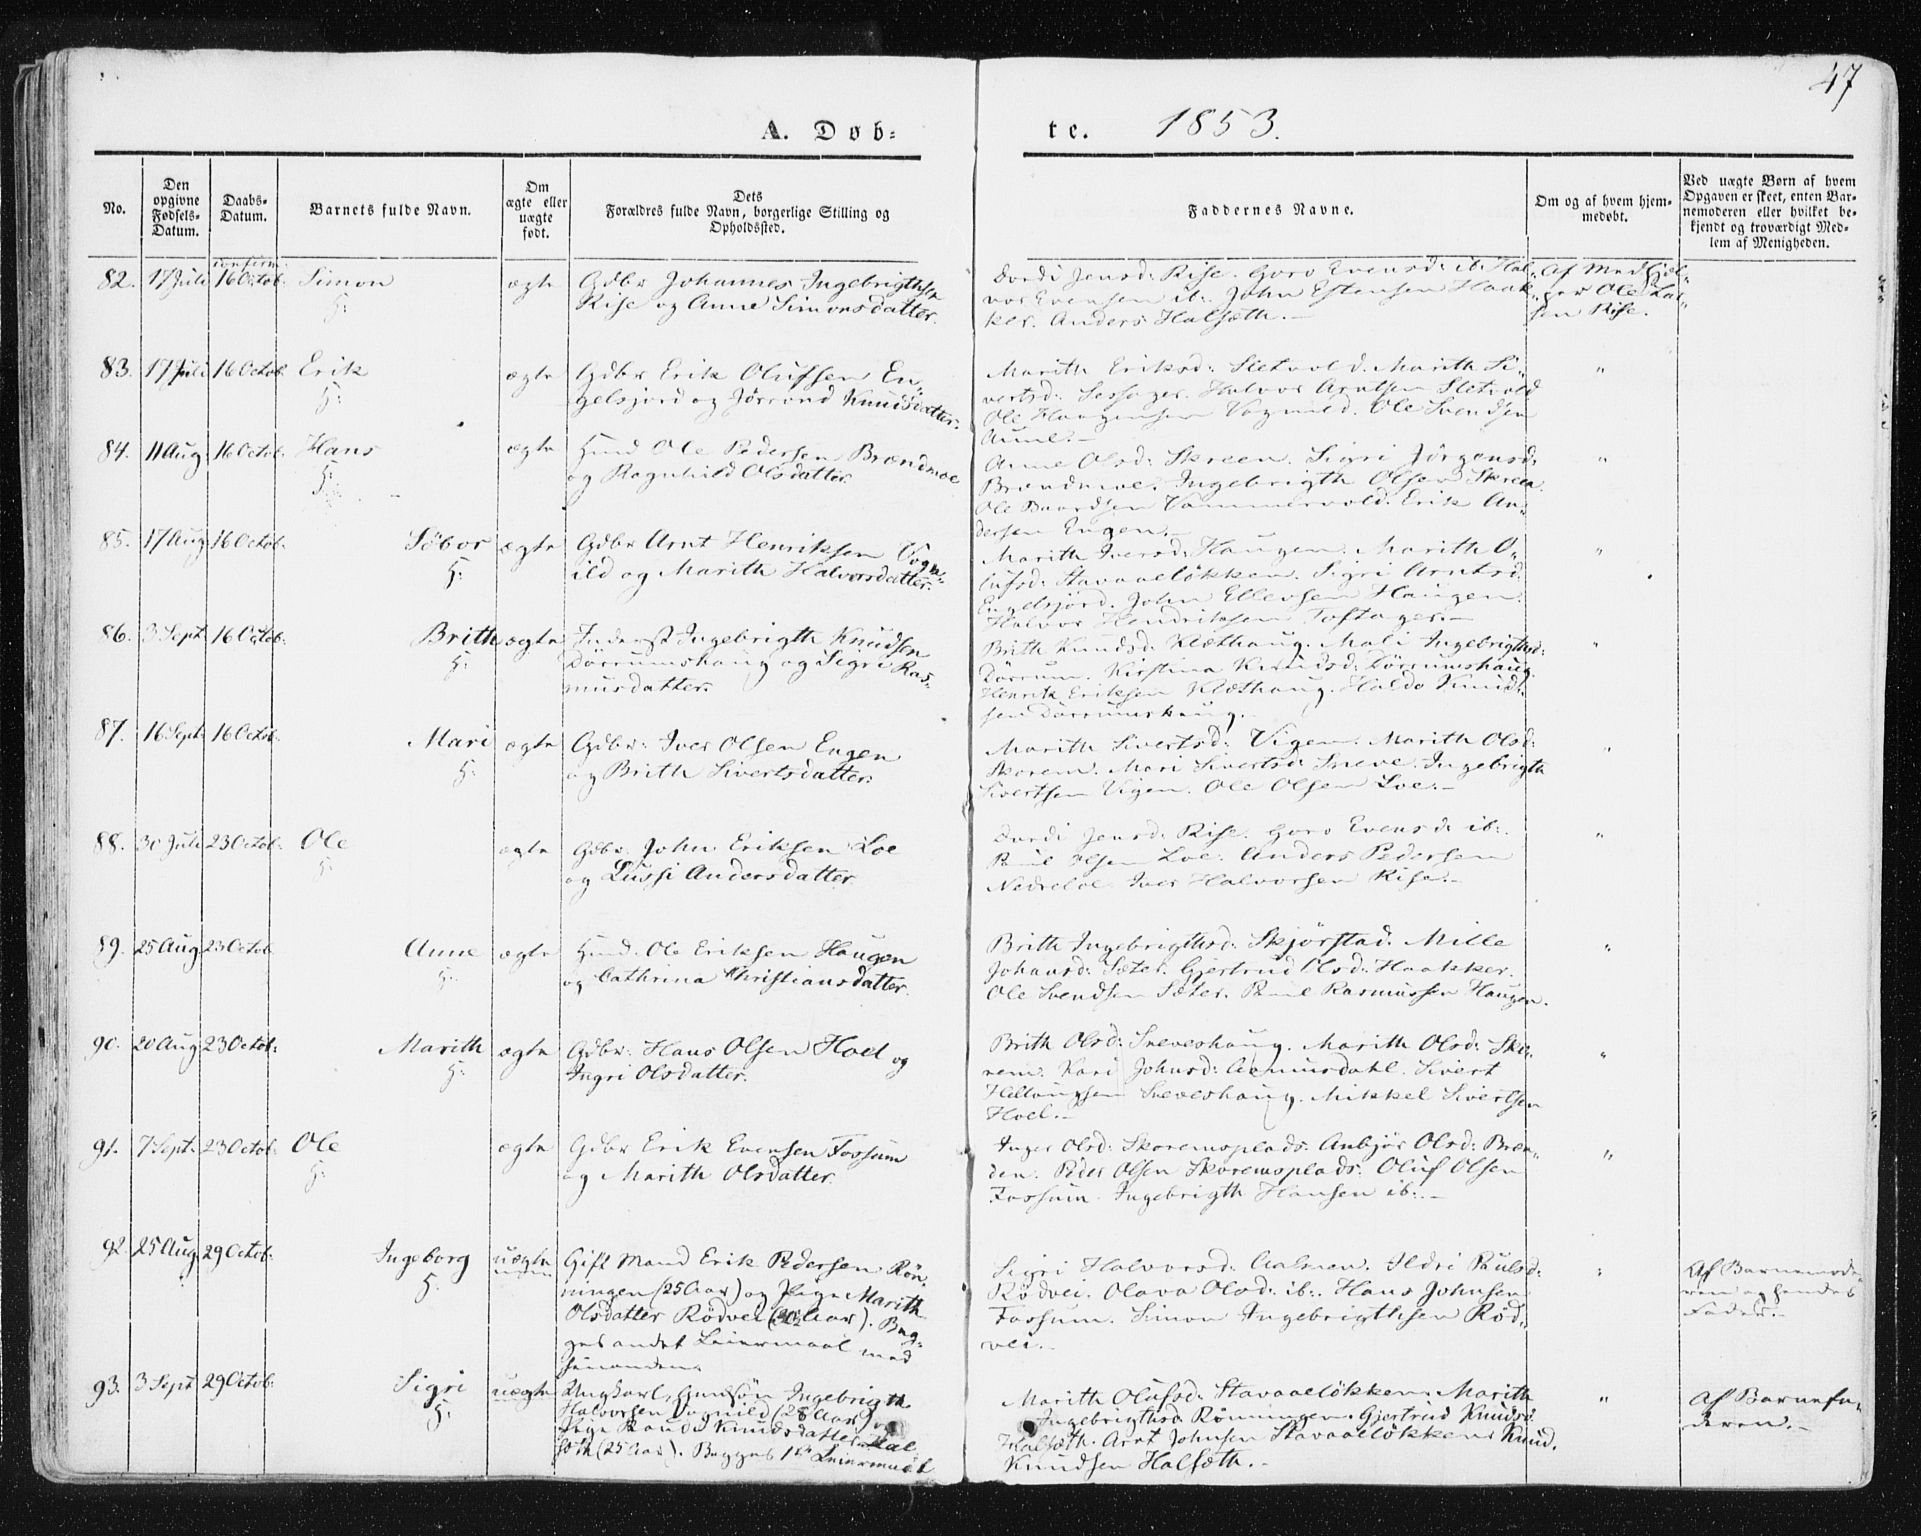 47
A. Døb=
te. 1853.
No.
Den opgivne Fødsels-Datum.
Daabs-Datum.
Barnets fulde Navn.
Om ægte eller uægte født.
Dets Forældres fulde Navn, borgerlige Stilling og Opholdssted.
Faddernes Navne.
Om og af hvem hjemmedøbt.
Ved uægte Børn af hvem Opgaven er skeet, enten Barnemoderen eller hvilket bekjendt og troværdigt Medlem af Menigheden.
82. 17 Juli 16 Octob. Simon ægte Gdbr Johannes Ingebrigtsen
Rise og Anne Simonsdatter.
Jensd: Rise. Goro Evensd: ib. Hal-
vor Evensen ib: John Estensen Haak-
ker. Anders Halsæth.-
Af Medhjæl-
per Ole
sen Rise.
83. 17 Juli 16 Octob. Erik ægte Gdbr Erik Olufsen En-
gelsjord og Jørrond Knudsdatter.
Marith Eriksd: Sletvold. Marith Si-
vertsd: Halvor Arntsen Sletvold
Ole Haagensen Vognild. Ole Svendsen
Aune.-
"
84. 11 Aug. 16 Octob. Hans ægte Huusmd Ole Pedersen Brændmoe
og Ragnhild Olsdatter.
Anne Olsd: Skreen. Sigri Jörgensd:
Brændmoe. Ingebrigth Olsen Skreen.
Ole Baardsen Vammervold. Erik An-
dersen Engen.-
"
85. 17 Aug. 16 Octob. Söbor ægte Gdbr Arnt Henriksen Vogn-
ild og Marith Halvorsdatter.
Marith Iversd: Haugen. Marith O-
lufsd: Stavaaelökken. Sigri Arntsd:
Engelsjörd. John Ellevsen Haugen.
Halvor Hendriksen Toftager.-
"
86. 3 Sept. 16 Octob. Brith ægte Inderst Ingebrigth Knudsen
Dörrumshaug og Sigri Ras-
musdatter.
Brith Knudsd: Klæthaug. Mali Ingebrigthsd:
Dörrum. Kirstina Knudsd: Dörrumshaug.
Henrik Eriksen Klæthaug. Haldo Knud-
sen Dörrumshaug.
"
87. 16 Sept. 16 Octob. Mari ægte Gdbr: Iver Olsen Engen
og Brith Sivertsdatter.
Marith Sivertsd: Vigen. Marith Olsd:
Skorem. Mari Sivertsd: Sneve. Ingebrigth
Sivertsen Vigen. Ole Olsen Loe.-
"
88. 30 Juli 23 Octob. Ole ægte Gdbr. John Eriksen Loe
og Lussi Andersdatter.
Jensd: Rise. Goro Evensd: ib:.
Olsen Loe. Anders Pedersen
Nedreloe. Iver Halvorsen Rise.-
"
89. 25 Aug. 23 Octob. Anne ægte Huusmd. Ole Eriksen Haugen
og Cathrina Christiansdatter.
Brith Ingebrigthsd: Skjørstad. Mille
Johansd: Sæter. Gjertrud Olsd: Haakker.
Ole Svendsen Sæter. Rasmussen Haugen.
"
90. 20 Aug. 23 Octob. Marith ægte Gdbr: Hans Olsen Hoel og
Ingri Olsdatter.
Brith Olsd: Sneveshaug. Marith Olsd: Sko-
rem. Kari Johnsd: Aamunsdahl. Sivert
Sneveshaug. Mikkel Sivertsen
Hoel.-
"
91. 7 Sept. 23 Octob. Ole ægte Gdbr Erik Evensen Fossum
og Marith Olsdatter.
Inger Olsd: Skoremsplads. Anbjör Olsd: Bræn-
den. Peder Olsen Skoremsplads. Oluf Olsen
Fossum. Ingebrigth Hansen ib:.-
"
92. 25 Aug. 29 Octob. Ingeborg uægte Gift Mand Erik Pedersen Rön-
ningen (25 Aar) og Pige Marith
Olsdatter Rødvei (20 Aar). Beg-
ges andet Leiermaal med
hinanden.
Sigri Halvorsd: Aalmen. Ildri Paulsd:
Rödvei. Olava Olsd: ib:. Hans Johnsen
Fossum. Simon Ingebrigthsen Rød-
vei.-
"
Af Barnemode-
ren og hendes
Fader.-
93. 3 Sept. 29 Octob. Sigri uægte Ungkarl, Gmdsön Ingebrigth
Halvorsen Vognild (28 Aar) og
Pige Knudsdatter Hal-
sæth (25 Aar). Begges 1ste Leiermaal
Marith Olufsd: Stavaaelökken. Marith
Ingebrigthsd: Rönningen. Gjertrud Knudsd:
Halsæth. Arnt Johnsen Stavaaelökken. Knud
Knudsen Halsæth.-
"
Af Barnefa-
deren.-